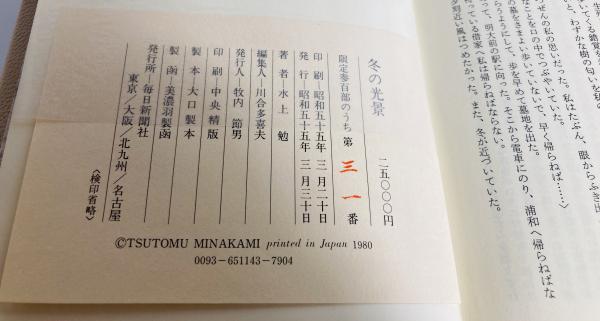 生死
てくる錯覚を
と、わずかな樹の匂いを私の
っぜんの私の思いだった。私はたぶん、眼からふき出
なことを口の中でつぶやいていた。
の墓をさまよい歩いていないで、早く帰らねば……〉
らうようにして、歩を早めて墓地を出た。
、明大前の駅に向った。そこから電車にのり、浦和へ帰らねばな
っている借家へ私は帰らねばならない。
夕刻近い風はつめたかった。また、冬が近づいていた。
冬の光景
二五〇〇〇円
限定参百部のうち 第 三一 番
印 刷―昭和五十五年 三月二十日
発 行―昭和五十五年 三月三十日
著 者―水上 勉
編集人―川合多喜夫
発行人―牧内 節男
印 刷―中央精版
製 本―大口製本
製 函―美濃羽製函
発行所―毎日新聞社
東京/大阪/北九州/名古屋
〈検印省略〉
©TSUTOMU MINAKAMI printed in Japan 1980
0093-651143-7904